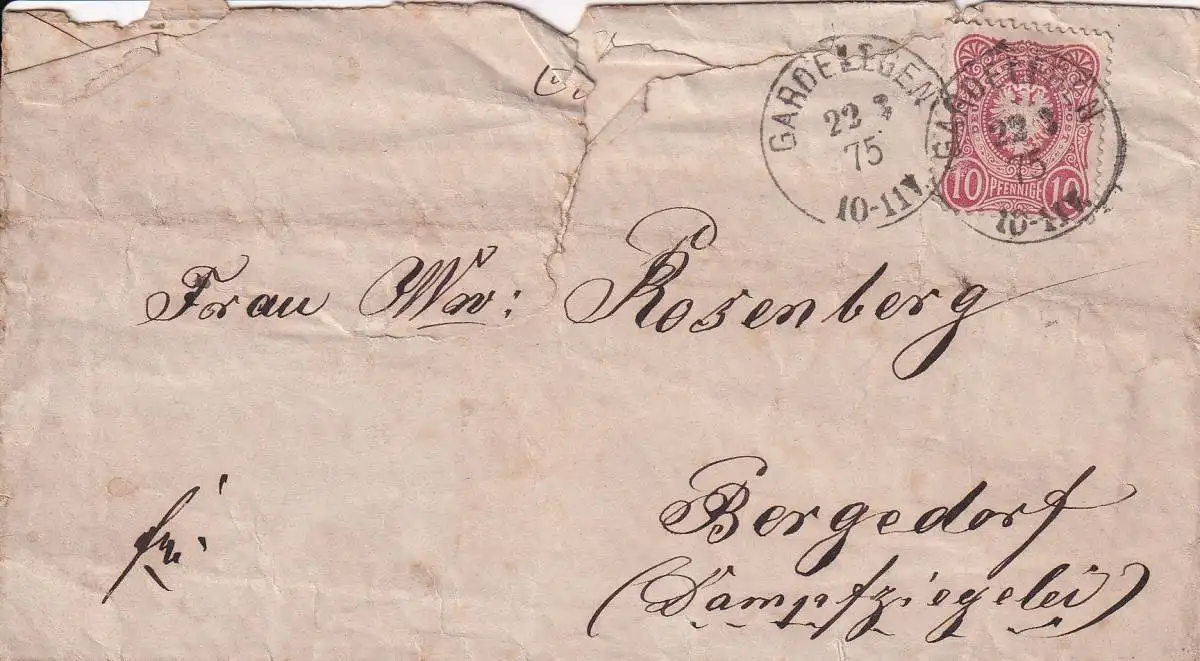 GARDELEGEN
22 3
75
10-11V.
GARDELEGEN
22 3
75
10-11V.
DEUTSCHE REICHS-POST
10 PFENNIGE 10
Frau Ww: Rosenberg
Bergedorf
(Dampfziegelei)